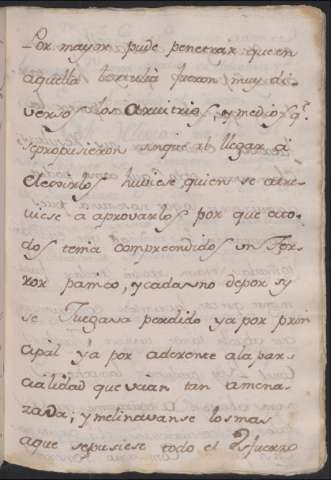 Por mayor pude penetrar que en
aquella tertulia fueron muy di-
versos los arvitrios, y medios q.^e
se propusieron sinque al llegar á
electuirlos hubiese quien se atre-
uiese a aprovarlos por que a to-
dos tenia comprendidos un Ter-
ror panico, y cada uno de por sy
se Juzgava perdido ya por prin
cipal ya por aderente a la par-
cialidad que veian tan amena-
zada; y inclinavanse los mas
a que se pusiese todo el Esfuerzo